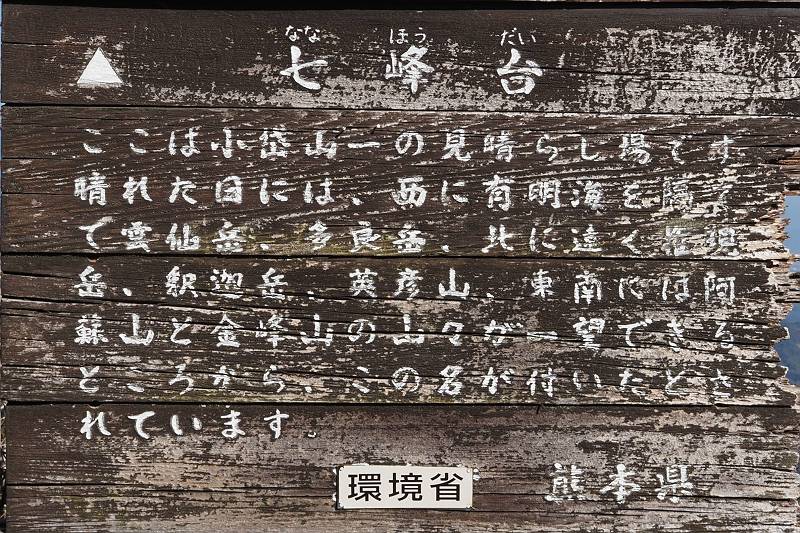 なな ほう だい
七峰台
ここは小岱山一の見晴らし場です
晴れた日には、西に有明海を隔
て雲仙岳、多良岳、北に遠く
岳、釈迦岳、英彦山、東南には阿
蘇山と金峰山の山々が一望できる
ところから、この名が付いたとさ
れています。
環境省 熊本県